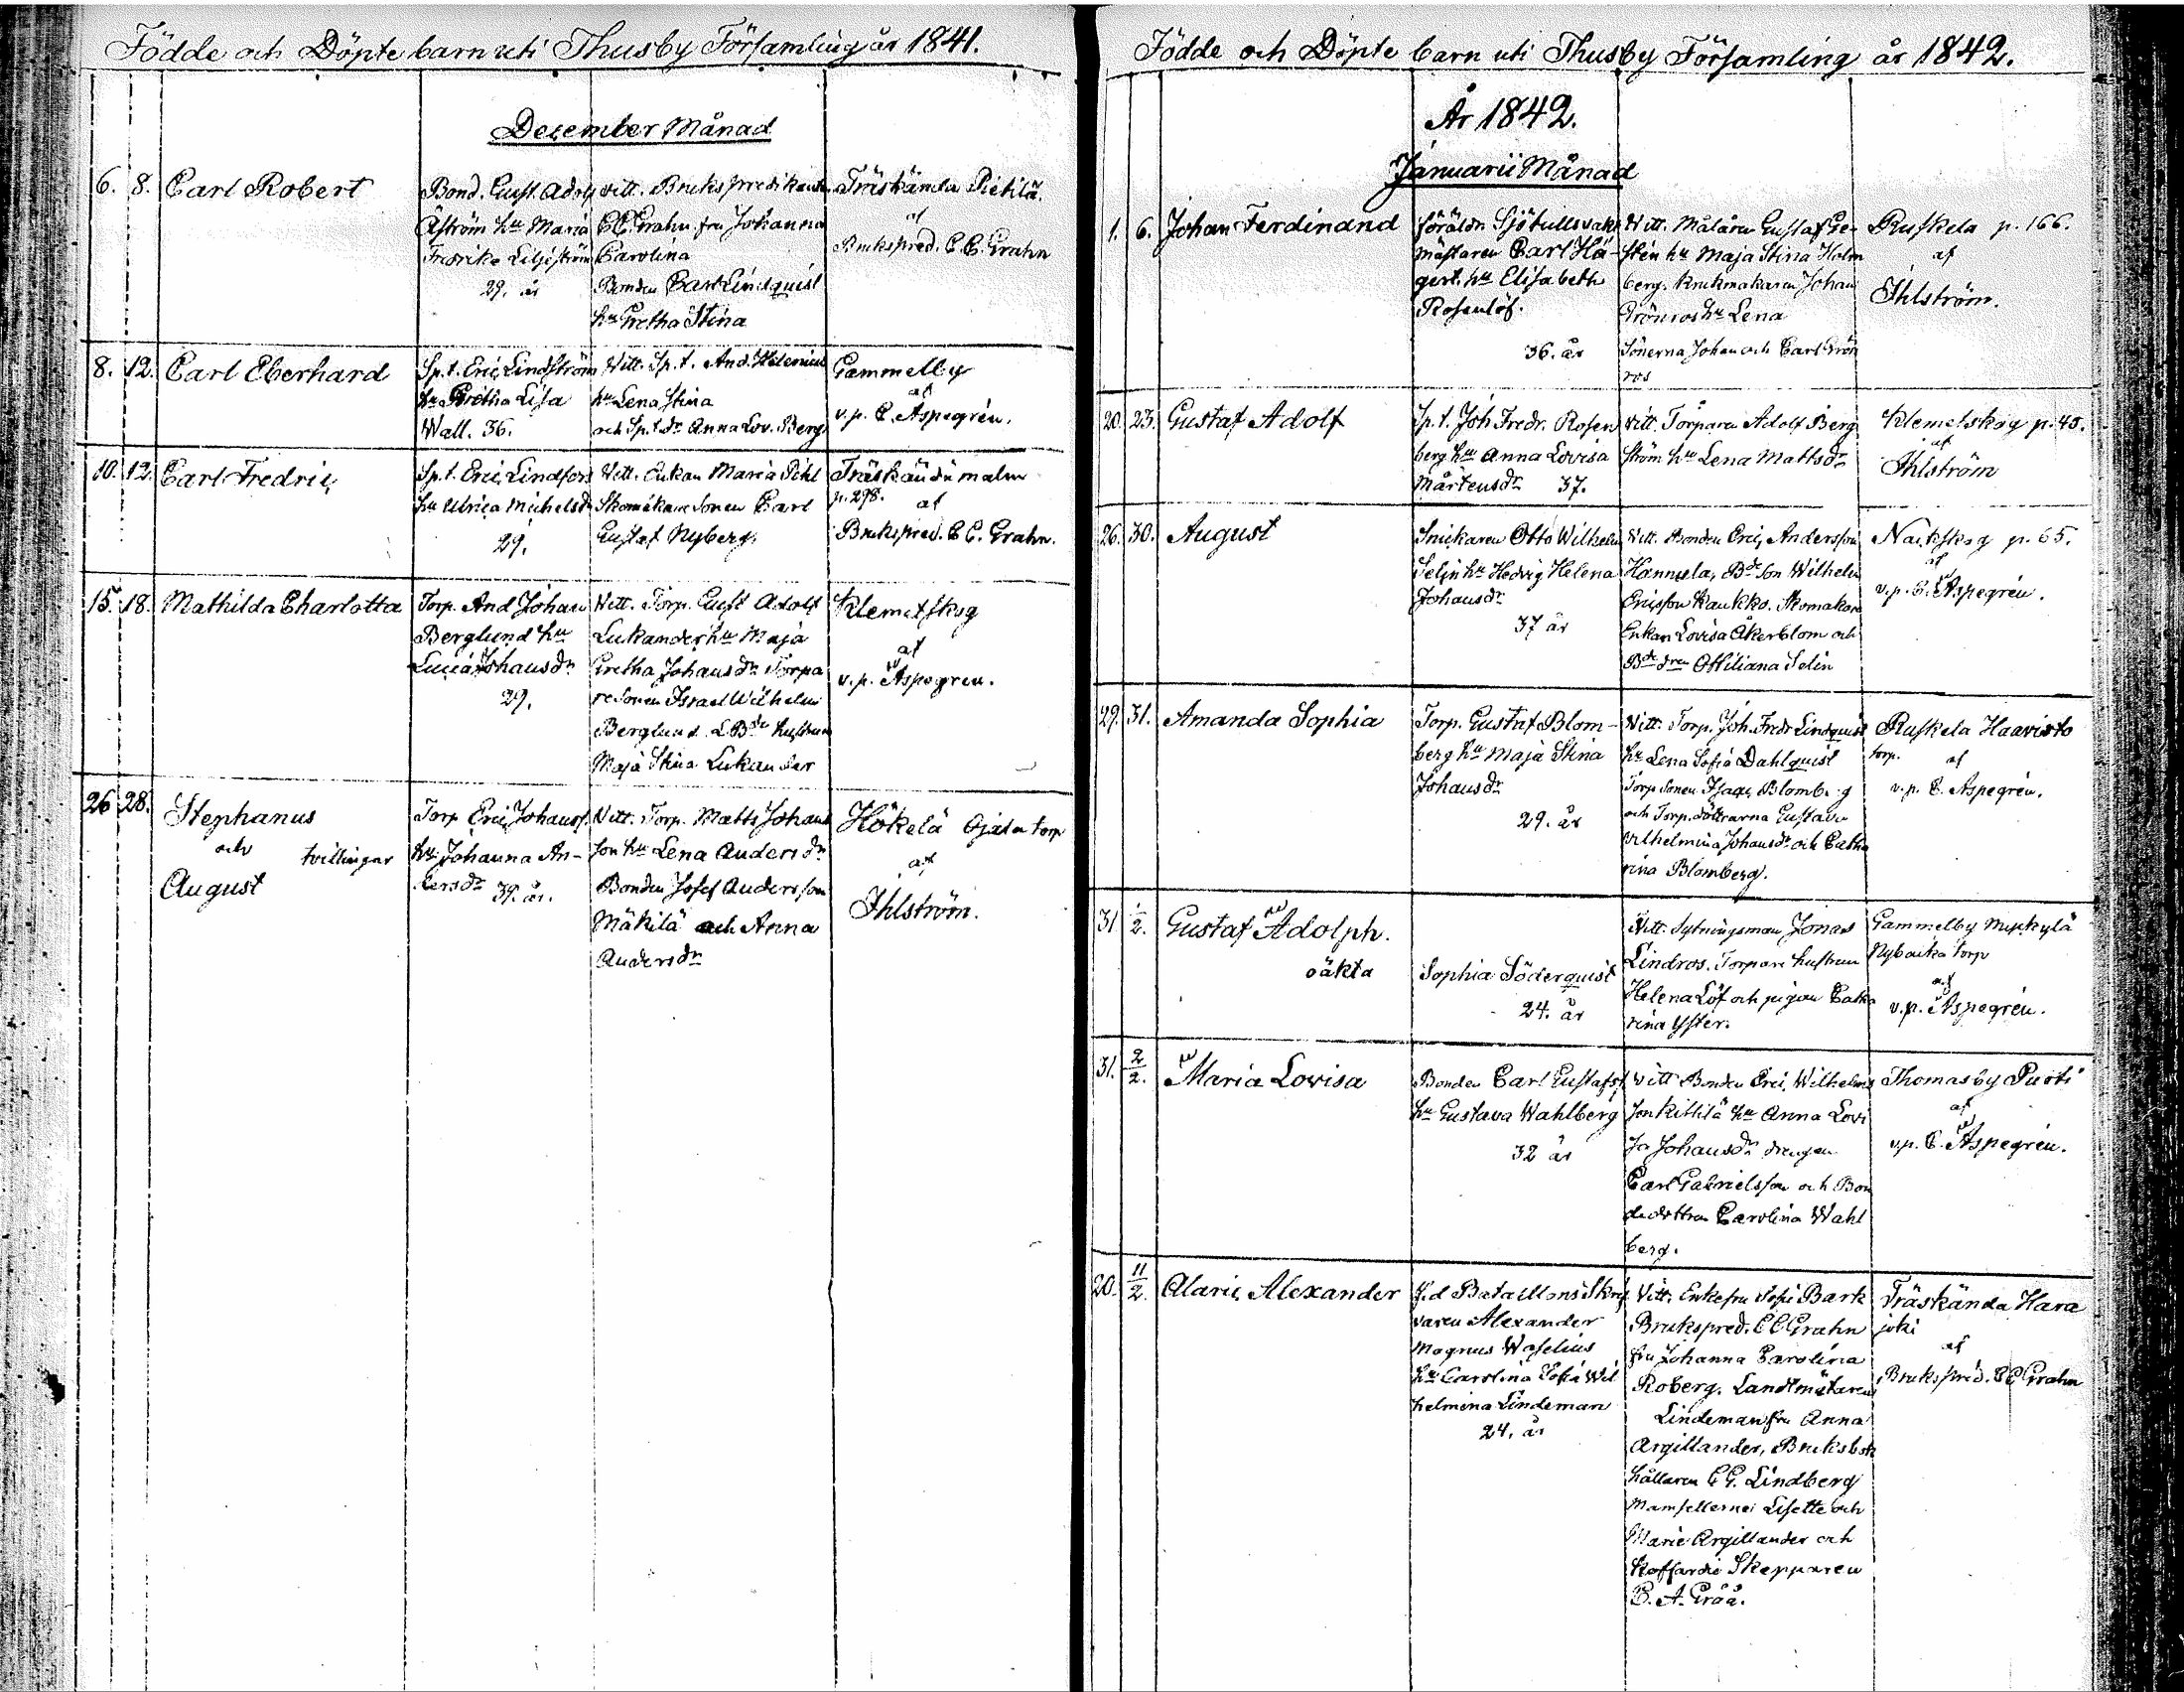 Födde och Döpte barn uti Thusby Församling år 1841.
December Månad
6. 8. Carl Robert
Bond. Gust. Adolf
Åström hu Maria
Fredrika Liljeström
29. år
Vitt. Brukspredikanten
C.C. Grahn fru Johanna
Carolina
Bonden Carl Lindquist
hu Gretha Stina
Träskända Pietilä.
af
Brukspred. C. C. Grahn
8. 12. Carl Eberhard
Sp.t. Eric Lindström
hu Gretha Lisa
Wall. 36.
Vitt. Sp.t. And. Helenius
hu Lena Stina
och Sp.t. dr Anna Lov. Berg
Gammelby
af
v.p. C. Aspegrén.
10. 12. Carl Fredric
Sp.t. Eric Lindfors
hu Ulrica Michelsdr
29.
Vitt. Enkan Maria Pihl
Skomakare Sonen Carl
Gustaf Nyberg.
Träskända malm
p. 298.
af
Brukspred. C C. Grahn.
15. 18. Mathilda Charlotta
Torp. And Johan
Berglund hu
Lucia Johansdr
29.
Vitt. Torp. Gust Adolf
Lukander hu Maja
Gretha Johansdr Torpa
resonen Israel Wilhelm
Berglund. hustrun
Maja Stina Lukander
Klemetskog
af
v.p. Aspegren.
26 28. Stephanus
och tvillingar
August
Torp Eric Johanss.
hu Johanna An-
dersdr 39. år.
Vitt. Torp. Matts Johans
son hu Lena Andersdr
Bonden Josef Andersson
Mäkilä och Anna
Andersdr
Hökelä Ojala torp
af
Ihlström.
Födde och Döpte barn uti Thusby Församling år 1842.
År 1842.
Januarii Månad
1. 6. Johan Ferdinand
föräldr Sjötullsvakt
mästaren Carl Hä-
gert. hu Elisabeth
Rosenlöf.
36. år
Vitt. Målaren Gustaf Ge-
stén hu Maja Stina Holm
berg. Krukmakaren Johan
Grönros hu Lena
Sönerna Johan och Carl Grön
ros
Ruskela p. 166.
af
Ihlström.
20. 23. Gustaf Adolf
Sp.t. Joh Fredr. Rosen
berg hu Anna Lovisa
Mårtensdr 37.
Vitt. Torparen Adolf Berg
ström hu Lena Mattsdr
Klemetskog p. 45.
af
Ihlström
26. 30. August
Snickaren Otto Wilhelm
Selin hu Hedvig Helena
Johansdr
37 år
Vitt. Bonden Eric Andersson
Hannula, Bde Son Wilhelm
Ericsson Kaukko. Skomakare
Enkan Lovisa Åkerblom och
Bde dren Ottiliana Selin
Nackskog p. 65.
af
v.p. C. Aspegrén.
29. 31. Amanda Sophia
Torp. Gustaf Blom-
berg hu Maja Stina
Johansdr
29. år
Vitt. Torp. Joh. Fredr Lindquist
hu Lena Sofia Dahlquist
Torp Sonen Isaac Blomberg
och Torp. döttrarna Gustava
Wilhelmina Johansdr och Catha
rina Blomberg.
Ruskela Haavisto
torp. af
v.p. C. Aspegrén.
31 1/2. Gustaf Adolph.
oäkta
Sophia Söderquist
24. år
Vitt. Sytningsman Jonas
Lindros. Torpare hustrun
Helena Löf och pigan Catha
rina Yster.
Gammelby
torp
af
v.p. Aspegrén.
31. 2/2. Maria Lovisa
Bonden Carl Gustafss.
hu Gustava Wahlberg
32 år
Vitt Bonden Eric Wilhelms
son Kittilä hu Anna Lovi
sa Johansdr drengen
Carl Gabrielsson och Bon
dedottren Carolina Wahl
berg.
Thomasby Puoti
af
v.p. C. Aspegrén.
20. 11/2. Alaric Alexander
f.d Bataillons Skrif
varen Alexander
Magnus Waselius
hu Carolina Sofia Wil
helmina Lindeman
24. år
Vitt. Enkefru Sofi Bark
Brukspred. C C Grahn
fru Johanna Carolina
Roberg. Landtmätaren
Lindeman fru Anna
Argillander, Bruksbok
hållaren C G. Lindberg
Mamsellerne Lisette och
Marie Argillander och
Koffardie Skepparen
C. A. Gråå.
Träskända Hara
joki
af
Brukspred. C C Grahn